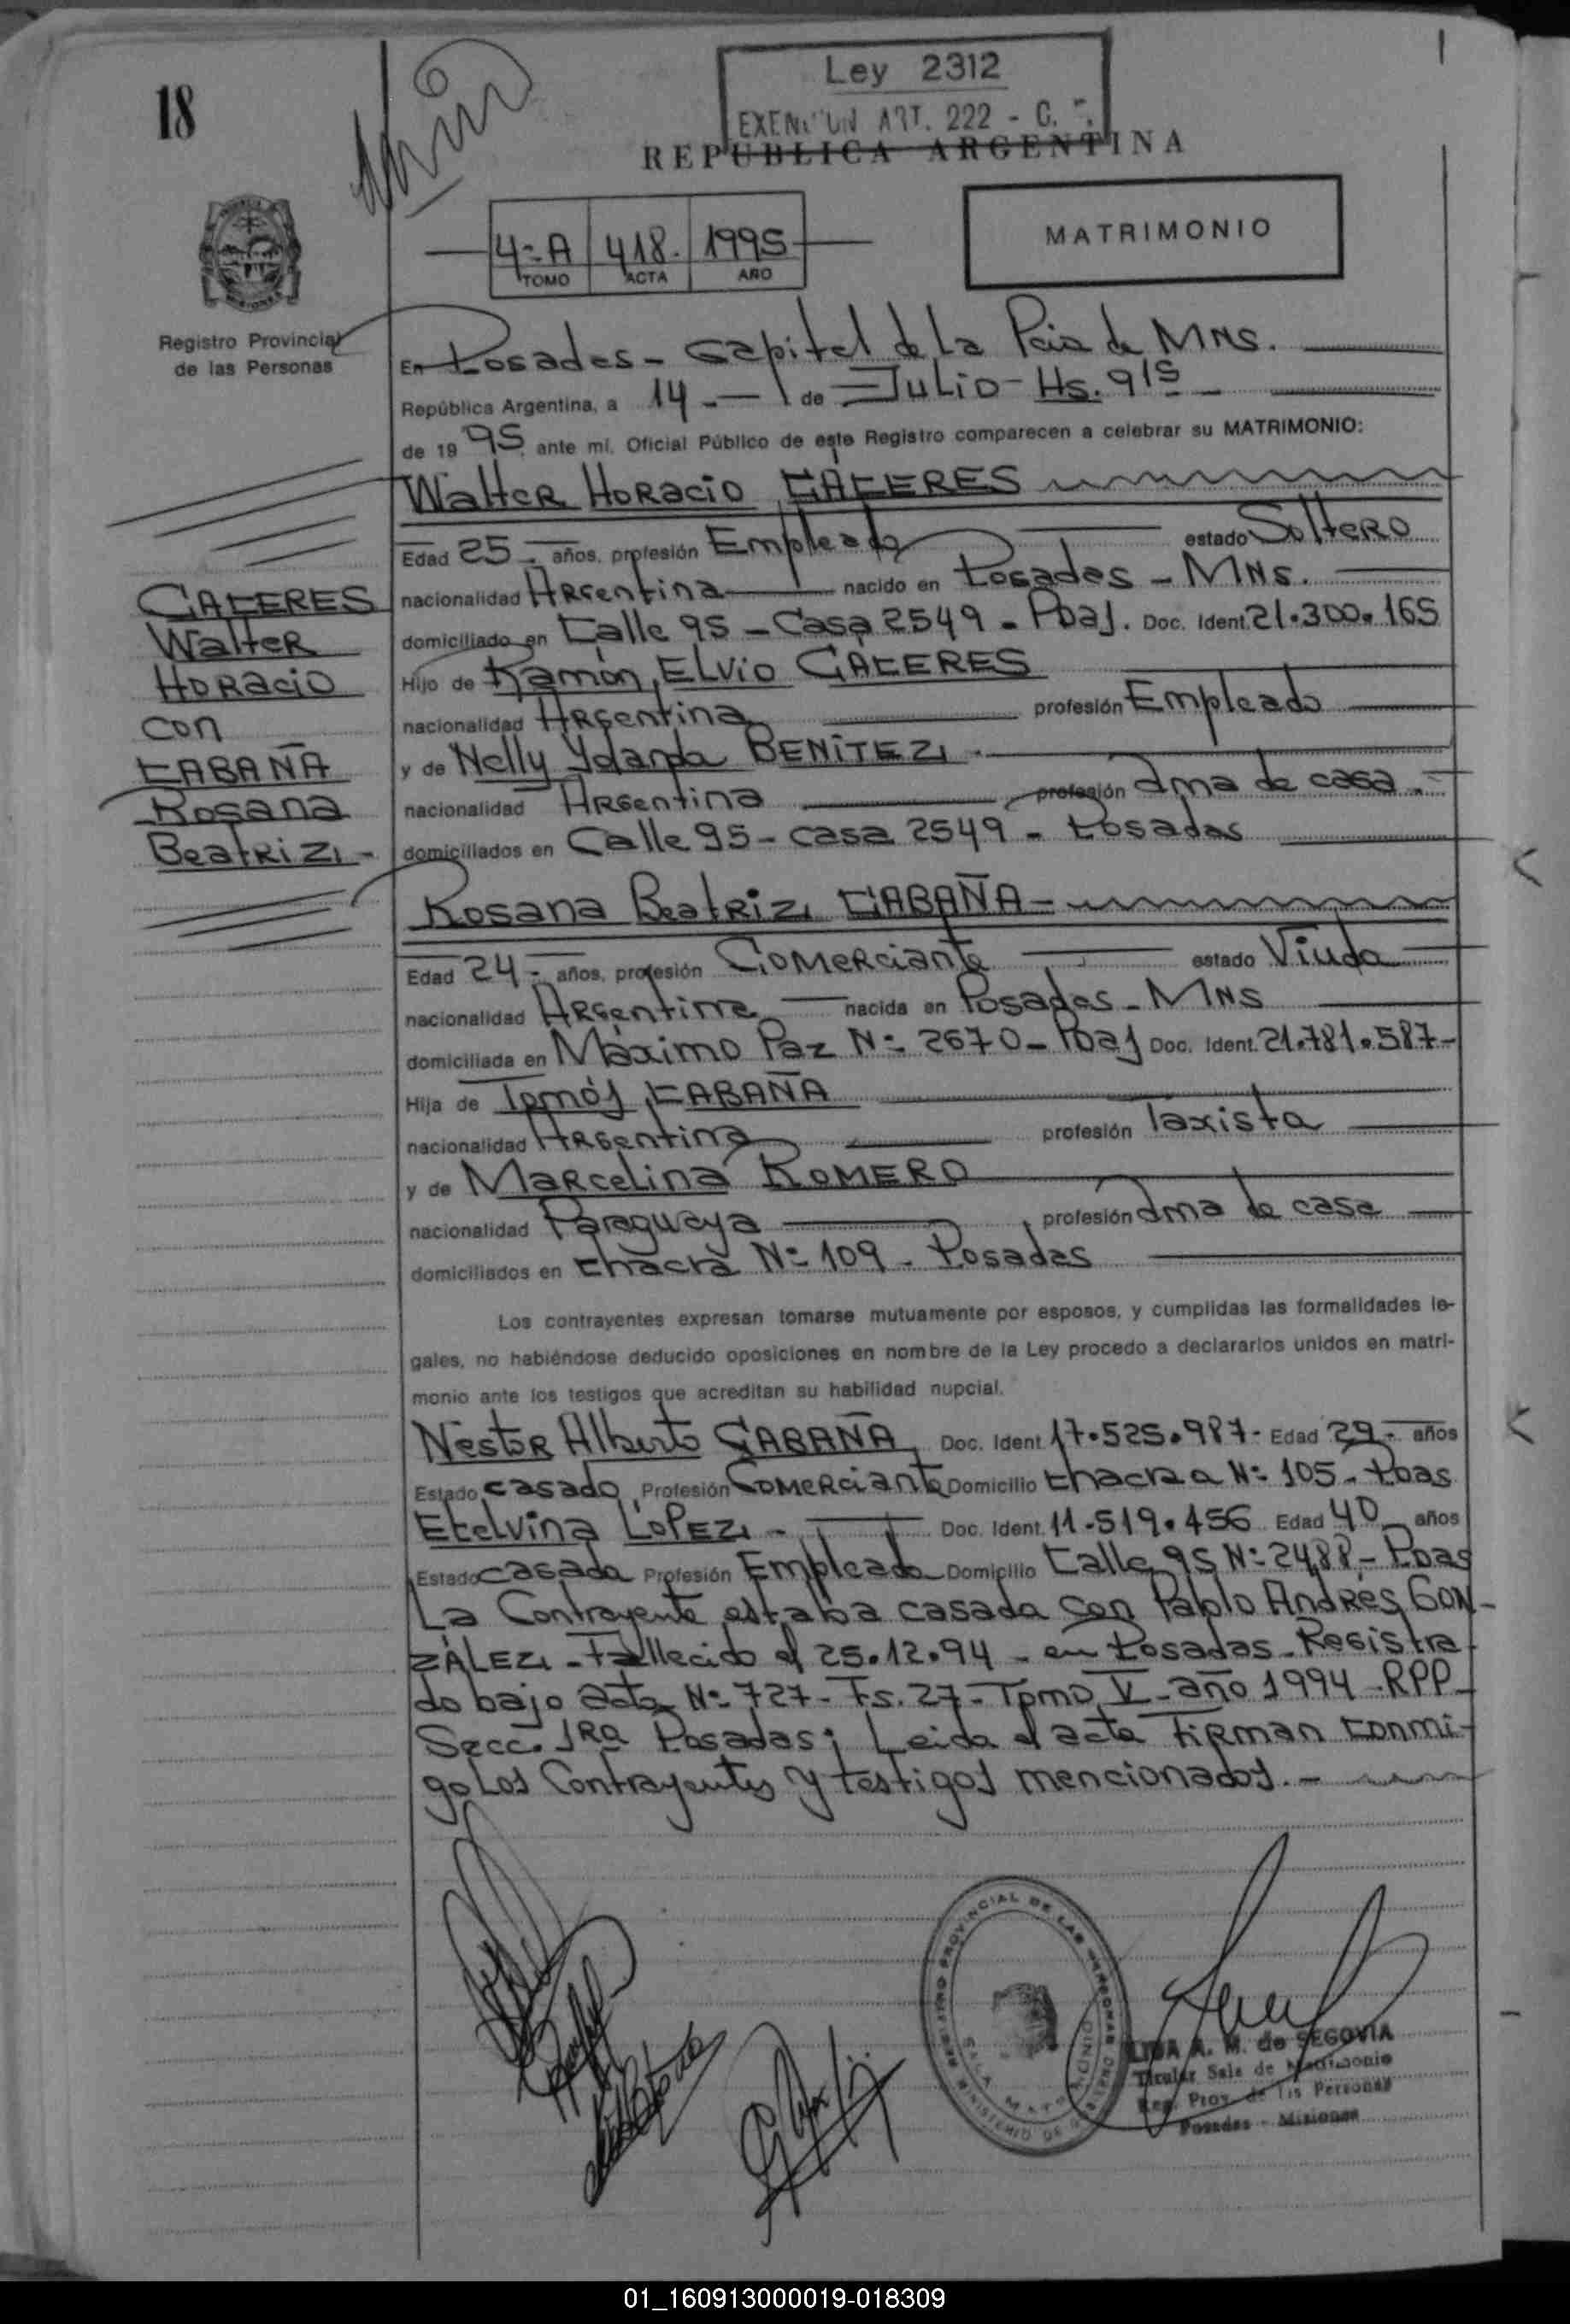 18
Ley 2312
EXENCION ART. 222 - C.
REPUBLICA ARGENTINA
4-A 418. 1995
TOMO ACTA AÑO
MATRIMONIO
Registro Provincial
de las Personas
En Posadas - Capital de La Pcia de MNS.
República Argentina, a 14.- de Julio - Hs. 915
de 1995 ante mí, Oficial Público de este Registro comparecen a celebrar su MATRIMONIO:
Walter Horacio CÁCERES
Edad 25.- años, profesión Empleado estado Soltero
nacionalidad Argentina nacido en Posadas - MNS.
domiciliado en Calle 95 - Casa 2549 - Pdas. Doc. Ident. 21.300.165
Hijo de Ramón Elvio CÁCERES
nacionalidad Argentina profesión Empleado
y de Nelly Yolanda BENÍTEZ.-
nacionalidad Argentina profesión ama de casa.-
domiciliados en Calle 95 - casa 2549 - Posadas
CACERES
Walter
Horacio
con
CABAÑA
Rosana
Beatriz -
Rosana Beatriz CABAÑA -
Edad 24- años, profesión Comerciante estado Viuda
nacionalidad Argentina nacida en Posadas - MNS
domiciliada en Máximo Paz N= 2670 - Pdas Doc. Ident. 21.781.587-
Hija de Tomás CABAÑA
nacionalidad Argentina profesión Taxista
y de Marcelina ROMERO
nacionalidad Paraguaya profesión ama de casa
domiciliados en chacra N= 109 - Posadas
Los contrayentes expresan tomarse mutuamente por esposos, y cumplidas las formalidades le-
gales, no habiéndose deducido oposiciones en nombre de la Ley procedo a declararlos unidos en matri-
monio ante los testigos que acreditan su habilidad nupcial.
Nestor Alberto CABAÑA Doc. Ident 17.525.987- Edad 29- años
Estado casado Profesión Comerciante Domicilio chacra N= 105 - Pdas
Etelvina LÓPEZ - Doc. Ident. 11.519.456 Edad 40 años
Estado casada Profesión Empleada Domicilio Calle 95 N= 2488 - Pdas
La Contrayente estaba casada con Pablo Andrés GON-
ZÁLEZ - Fallecido el 25.12.94 - en Posadas - Registra-
do bajo acta N= 727 - Fs. 27 - Tomo V - año 1994 - RPP-
Secc. 1ra Posadas; Leida el acta Firman conmi-
go Los Contrayentes y testigos mencionados.-
REGISTRO PROVINCIAL DE LAS PERSONAS
SALA MATRIMONIO
MINISTERIO DE GOBIERNO
LIDA A. M. de SEGOVIA
Titular Sala de Matrimonio
Reg. Prov. de las Personas
Posadas - Misiones
01_160913000019-018309